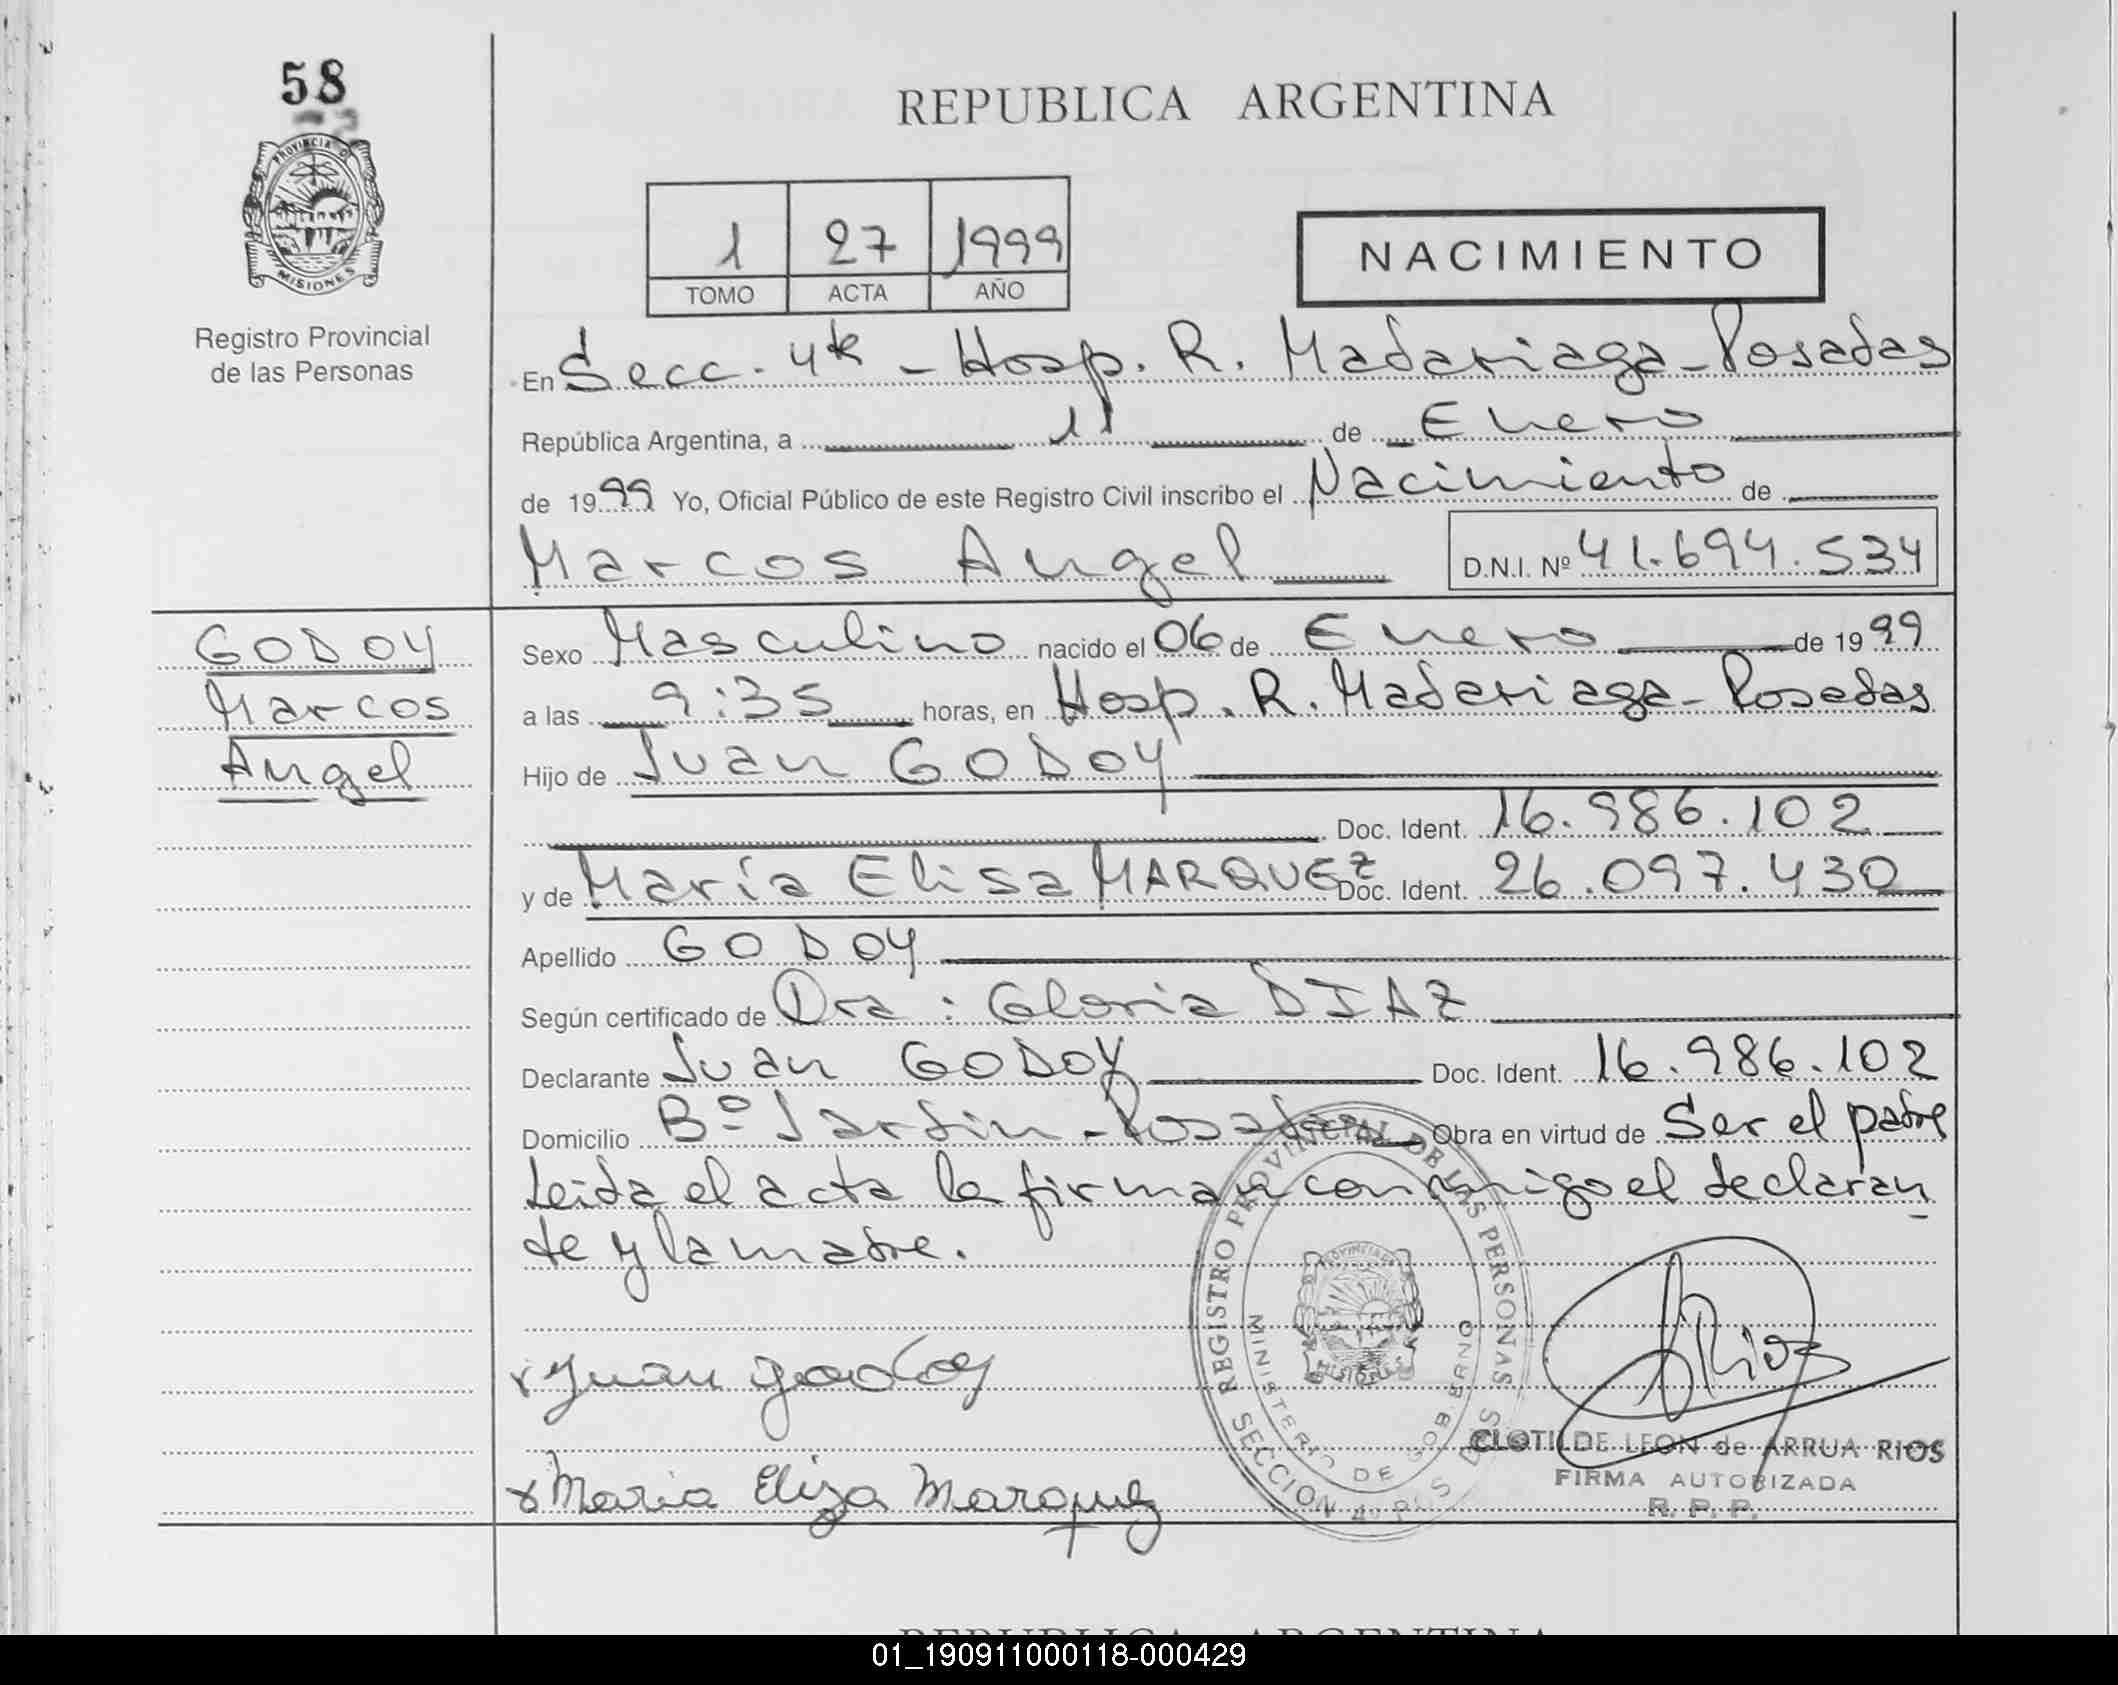 58
PROVINCIA D
MISIONES
Registro Provincial
de las Personas
REPUBLICA ARGENTINA
1 27 1999
TOMO ACTA AÑO
NACIMIENTO
En Secc. 4ta - Hosp. R. Madariaga - Posadas
República Argentina, a 11 de Enero
de 1999 Yo, Oficial Público de este Registro Civil inscribo el Nacimiento de
Marcos Angel D.N.I. Nº 41.694.534
GODOY
Marcos
Angel
Sexo Masculino nacido el 06 de Enero de 1999
a las 9:35 horas, en Hosp. R. Madariaga - Posadas
Hijo de Juan GODOY
Doc. Ident. 16.986.102
y de María Elisa MARQUEZ Doc. Ident. 26.097.430
Apellido GODOY
Según certificado de Dra: Gloria DIAZ
Declarante Juan GODOY Doc. Ident. 16.986.102
Domicilio Bº Jardin - Posadas Obra en virtud de Ser el padre
Leida el acta la firman conmigo el declaran
te y la madre.
x Juan godoy
x Maria Eliza Marquez
REGISTRO PROVINCIAL DE LAS PERSONAS
MINISTERIO DE GOBIERNO
SECCION 4º POSADAS
PROVINCIA DE
MISIONES
ARios
CLOTILDE LEON de ARRUA RIOS
FIRMA AUTORIZADA
R. P. P.
REPUBLICA ARGENTINA
01_190911000118-000429